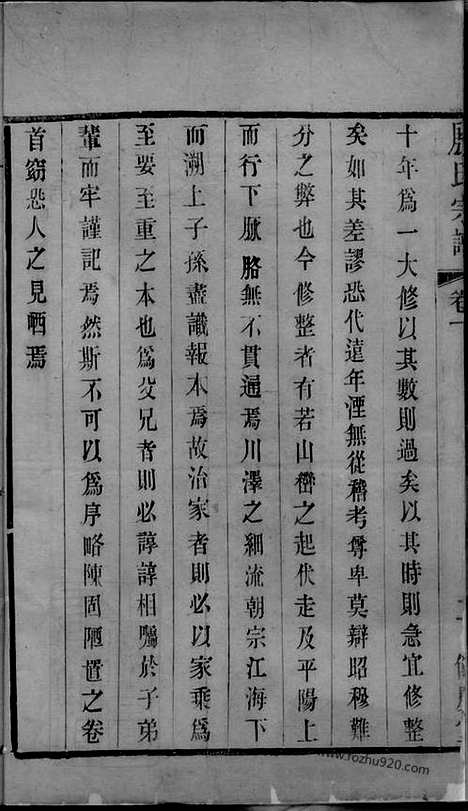 十年為一大修以其數則過矣以其時則急宜修整
矣如其差謬恐代遠年湮無從稽考尊卑莫辯昭穆難
分之弊也今修整者有若山巒之起伏走及平陽上
而行下脈胳無不貫通焉川澤之細流朝宗江海下
而溯上子孫盡識報本焉故治家者則必以家乘為
至要至重之本也為父兄者則必諄諄相囑於子弟
輩而牢謹記焉然斯不可以為序略陳固陋置之卷
首窈恐人之見哂焉
氏宗譜
卷一
www.fozhu920.com